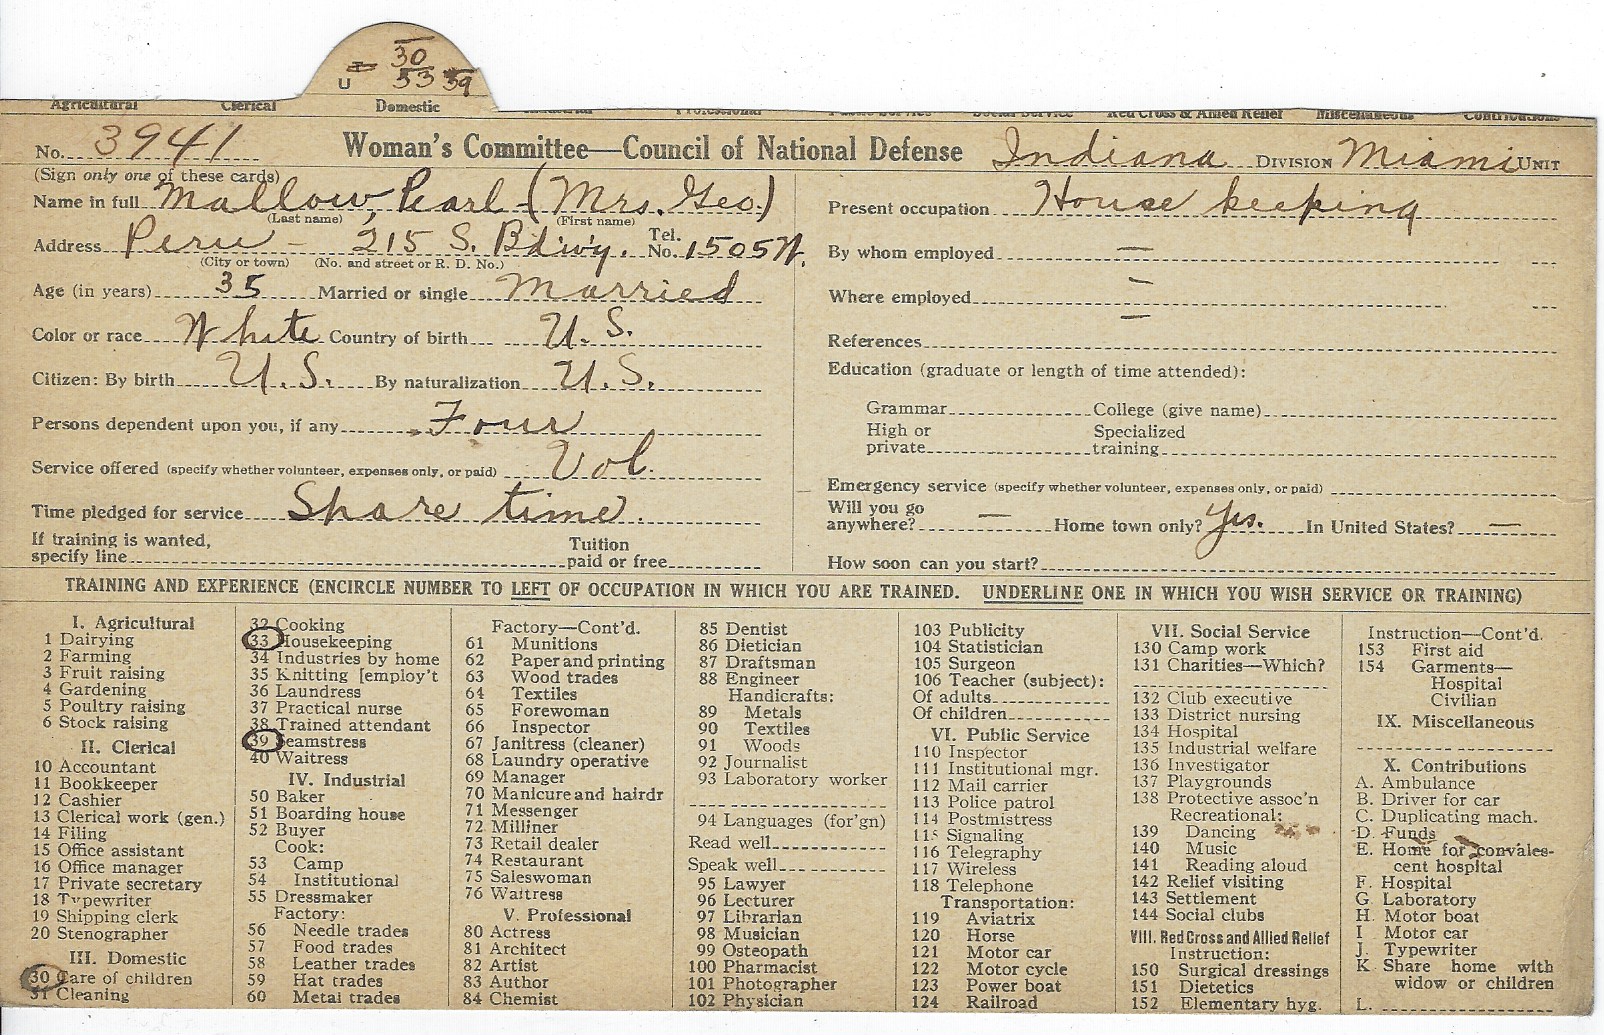 30
U 53 39
Agricultural Clerical Domestic Industrial Professional Public Service Social Service Red Cross & Allied Relief Miscellaneous Contributions
No. 3941 Woman's Committee—Council of National Defense Indiana DIVISION Miami UNIT
(Sign only one of these cards)
Name in full Mallow, Pearl (Mrs. Geo.)
(Last name) (First name)
Address Peru - 215 S. Bdwy. Tel. No. 1505 W.
(City or town) (No. and street or R. D. No.)
Age (in years) 35 Married or single Married
Color or race White Country of birth U.S.
Citizen: By birth U.S. By naturalization U.S.
Persons dependent upon you, if any Four
Service offered (specify whether volunteer, expenses only, or paid) Vol.
Time pledged for service Share time.
If training is wanted,
specify line Tuition paid or free
Present occupation House keeping
By whom employed —
Where employed —
References —
Education (graduate or length of time attended):
Grammar College (give name)
High or private Specialized training
Emergency service (specify whether volunteer, expenses only, or paid)
Will you go anywhere? — Home town only? Yes. In United States? —
How soon can you start?
TRAINING AND EXPERIENCE (ENCIRCLE NUMBER TO LEFT OF OCCUPATION IN WHICH YOU ARE TRAINED. UNDERLINE ONE IN WHICH YOU WISH SERVICE OR TRAINING)
I. Agricultural
1 Dairying
2 Farming
3 Fruit raising
4 Gardening
5 Poultry raising
6 Stock raising
II. Clerical
10 Accountant
11 Bookkeeper
12 Cashier
13 Clerical work (gen.)
14 Filing
15 Office assistant
16 Office manager
17 Private secretary
18 Typewriter
19 Shipping clerk
20 Stenographer
III. Domestic
30 Care of children
31 Cleaning
32 Cooking
33 Housekeeping
34 Industries by home
35 Knitting [employ't
36 Laundress
37 Practical nurse
38 Trained attendant
39 Seamstress
40 Waitress
IV. Industrial
50 Baker
51 Boarding house
52 Buyer
Cook:
53 Camp
54 Institutional
55 Dressmaker
Factory:
56 Needle trades
57 Food trades
58 Leather trades
59 Hat trades
60 Metal trades
Factory—Cont'd.
61 Munitions
62 Paper and printing
63 Wood trades
64 Textiles
65 Forewoman
66 Inspector
67 Janitress (cleaner)
68 Laundry operative
69 Manager
70 Manicure and hairdr
71 Messenger
72 Milliner
73 Retail dealer
74 Restaurant
75 Saleswoman
76 Waitress
V. Professional
80 Actress
81 Architect
82 Artist
83 Author
84 Chemist
85 Dentist
86 Dietician
87 Draftsman
88 Engineer
Handicrafts:
89 Metals
90 Textiles
91 Woods
92 Journalist
93 Laboratory worker
94 Languages (for'gn)
Read well
Speak well
95 Lawyer
96 Lecturer
97 Librarian
98 Musician
99 Osteopath
100 Pharmacist
101 Photographer
102 Physician
103 Publicity
104 Statistician
105 Surgeon
106 Teacher (subject):
Of adults
Of children
VI. Public Service
110 Inspector
111 Institutional mgr.
112 Mail carrier
113 Police patrol
114 Postmistress
115 Signaling
116 Telegraphy
117 Wireless
118 Telephone
Transportation:
119 Aviatrix
120 Horse
121 Motor car
122 Motor cycle
123 Power boat
124 Railroad
VII. Social Service
130 Camp work
131 Charities—Which?
132 Club executive
133 District nursing
134 Hospital
135 Industrial welfare
136 Investigator
137 Playgrounds
138 Protective assoc'n
Recreational:
139 Dancing
140 Music
141 Reading aloud
142 Relief visiting
143 Settlement
144 Social clubs
VIII. Red Cross and Allied Relief
Instruction:
150 Surgical dressings
151 Dietetics
152 Elementary hyg.
Instruction—Cont'd.
153 First aid
154 Garments—
Hospital
Civilian
IX. Miscellaneous
X. Contributions
A. Ambulance
B. Driver for car
C. Duplicating mach.
D. Funds
E. Home for convales-
cent hospital
F. Hospital
G. Laboratory
H. Motor boat
I Motor car
J. Typewriter
K Share home with
widow or children
L.